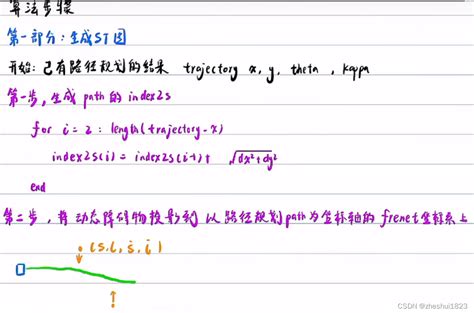 算法步骤
第一部分：生成ST图
开始：已有路径规划的结果 trajectory x, y, theta, kappa
第一步，生成 path 的 index2s
for i = 2 : length(trajectory-x)
index2s(i) = index2s(i-1) + √dx²+dy²
end
第二步，将动态障碍物投影到 以路径规划path为坐标轴的 frenet坐标系上
(s, l, ṡ, l̇)
CSDN @zheshui1823